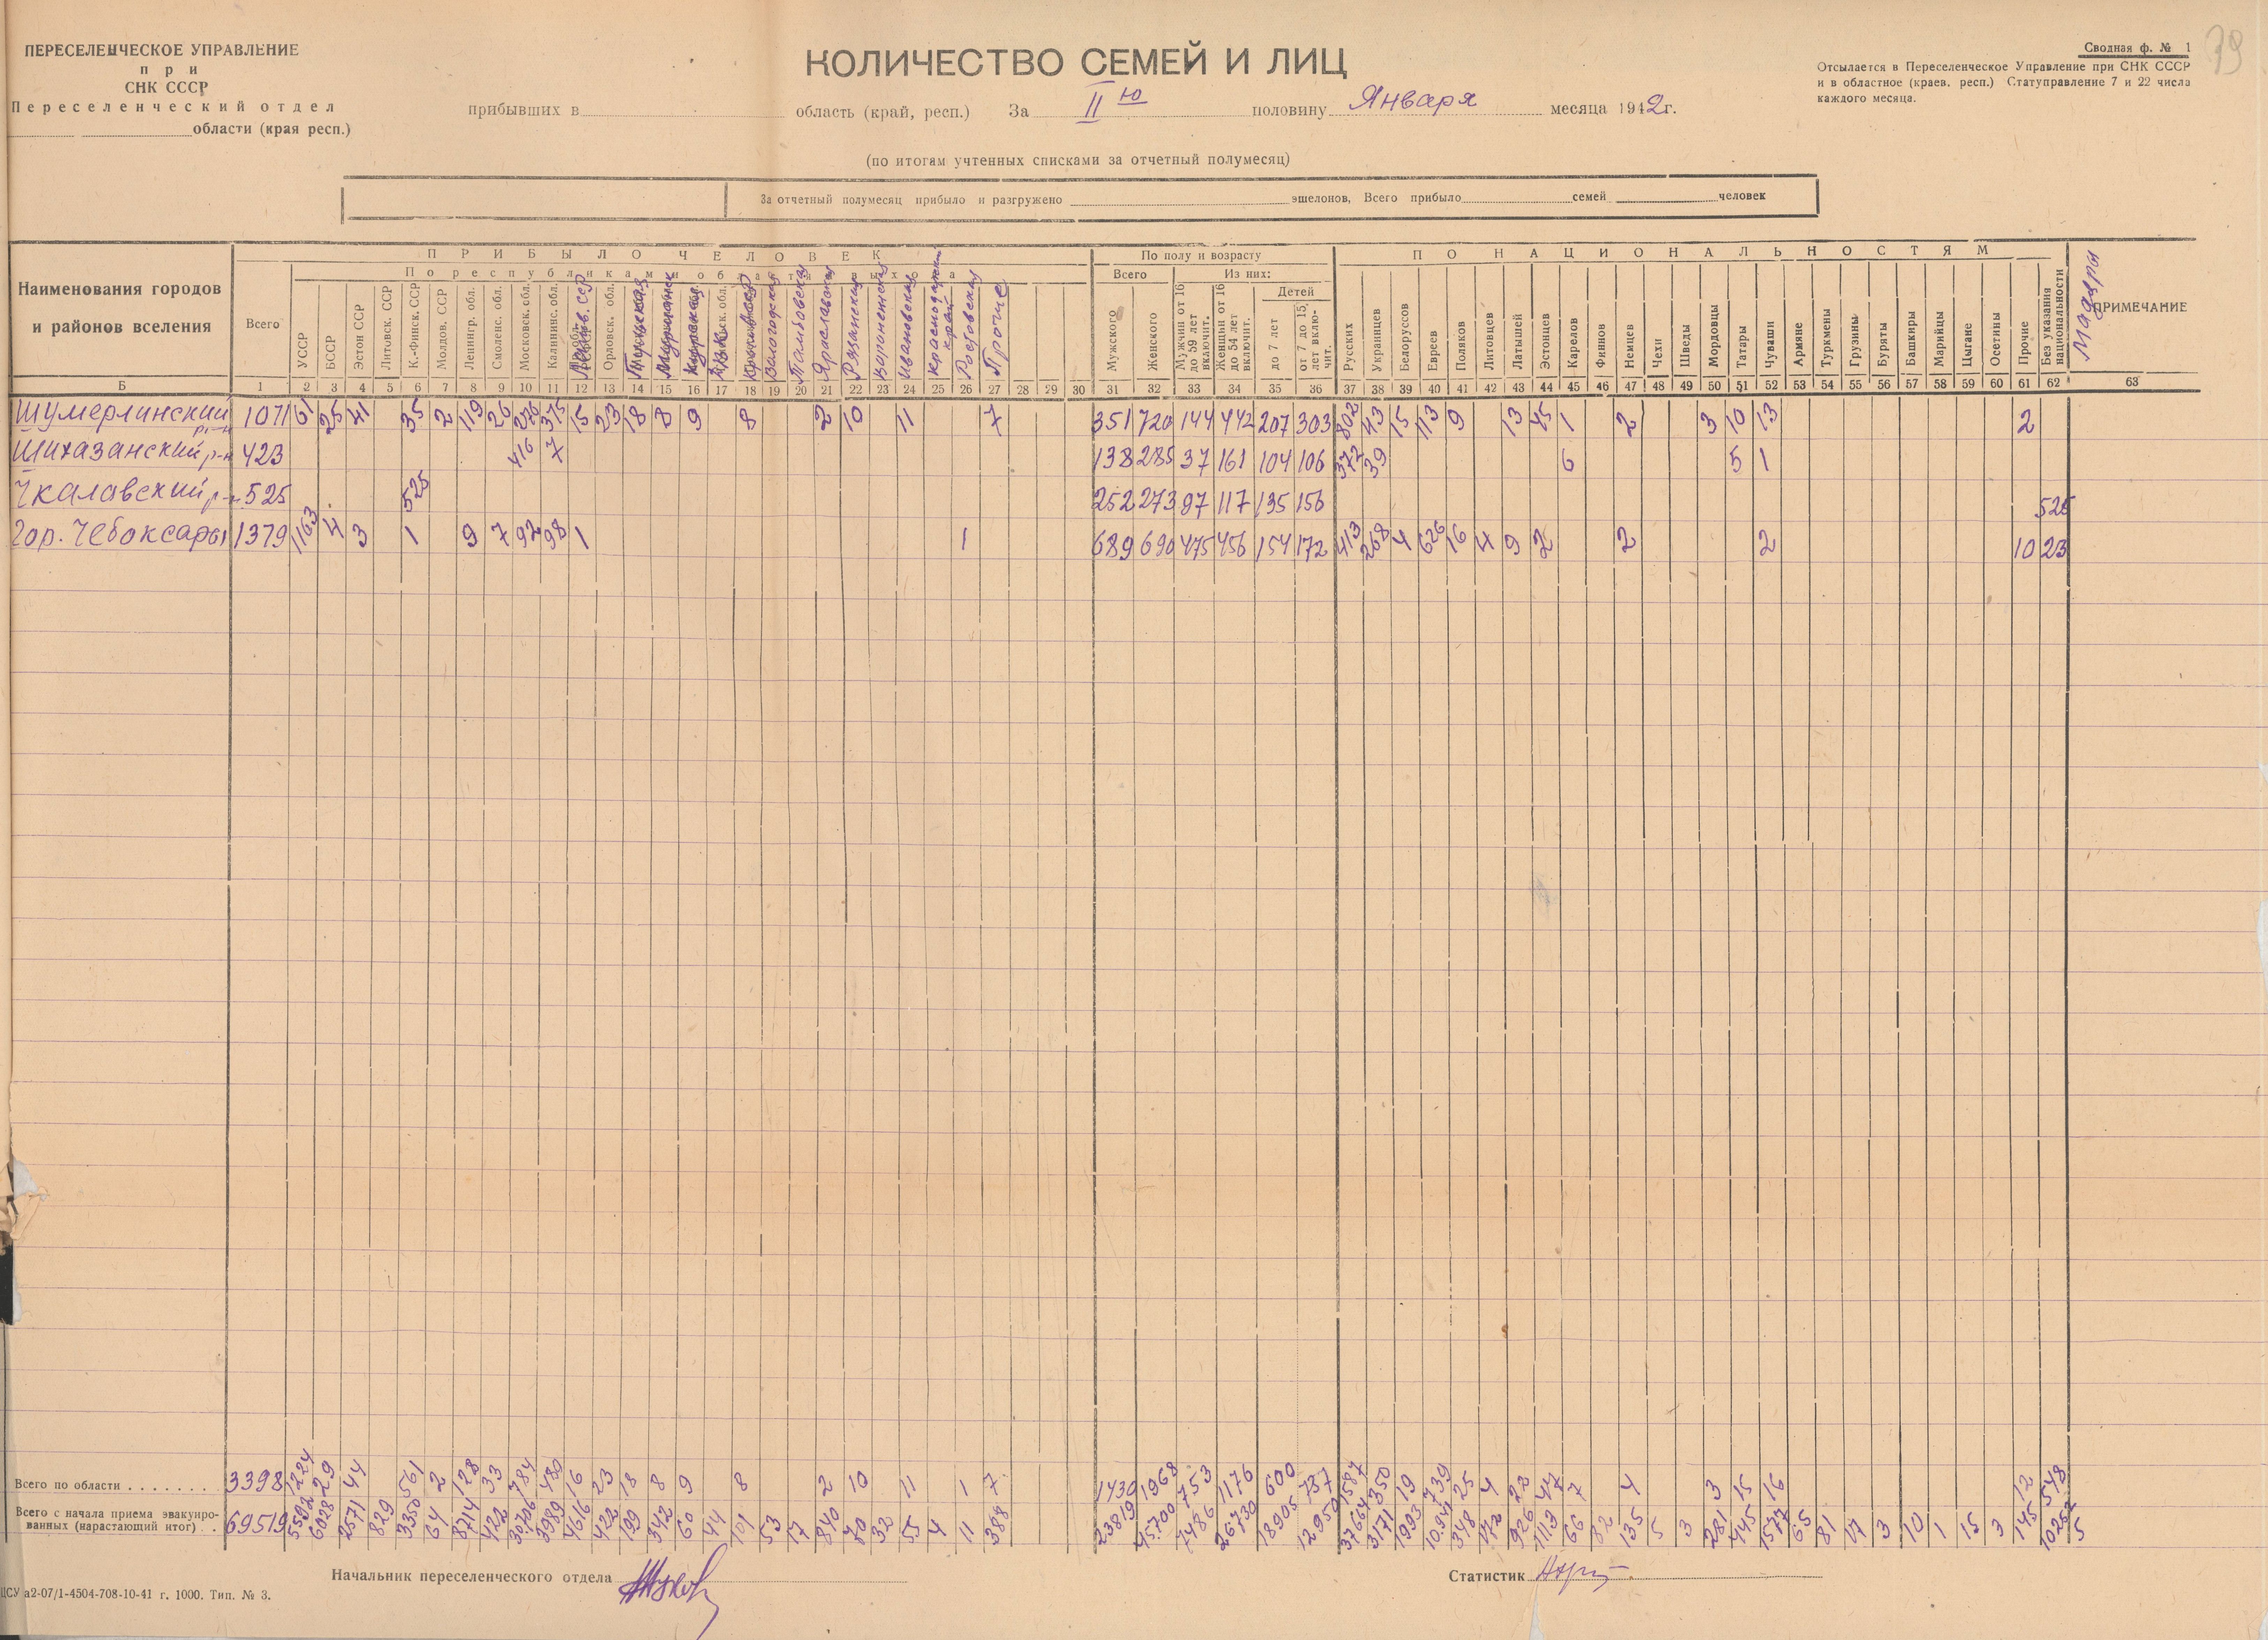 ПЕРЕСЕЛЕНЧЕСКОЕ УПРАВЛЕНИЕ
при
СНК СССР
Переселенческий отдел
области (края респ.)
КОЛИЧЕСТВО СЕМЕЙ И ЛИЦ
прибывших в область (край, респ.) За II ю половину Января месяца 1942г.
(по итогам учтенных списками за отчетный полумесяц)
Сводная ф. № 1
Отсылается в Переселенческое Управление при СНК СССР
и в областное (краев. респ.) Статуправление 7 и 22 числа
каждого месяца.
39
За отчетный полумесяц прибыло и разгружено эшелонов, Всего прибыло семей человек
Наименования городов
и районов вселения
ПРИБЫЛО ЧЕЛОВЕК
По республикам и областям выхода
Всего
УССР
БССР
Эстон ССР
Литовск. ССР
К.-Финск. ССР
Молдов. ССР
Ленингр. обл.
Смоленс. обл.
Московск. обл.
Калининс. обл.
Латв. ССР
Орловск. обл.
Тульская
Мурманск
Курская
Крымская АССР
Вологодская
Тамбовская
Ярославская
Рязанская
Воронежская
Ивановская
Краснодарский край
Ростовская
Прочие
По полу и возрасту
Всего
Из них:
Мужского
Женского
Мужчин от 16 до 59 лет включит.
Женщын от 16 до 54 лет включит.
Детей
до 7 лет
от 7 до 15 лет включит.
ПО НАЦИОНАЛЬНОСТЯМ
Русских
Украинцев
Белоруссов
Евреев
Поляков
Литовцев
Латышей
Эстонцев
Карелов
Финнов
Немцев
Чехи
Шведы
Мордовцы
Татары
Чуваши
Армяне
Туркмены
Грузины
Буряты
Башкиры
Марийцы
Цыгане
Осетины
Прочие
Без указания национальности
Мадяры
ПРИМЕЧАНИЕ
Б 1 2 3 4 5 6 7 8 9 10 11 12 13 14 15 16 17 18 19 20 21 22 23 24 25 26 27 28 29 30 31 32 33 34 35 36 37 38 39 40 41 42 43 44 45 46 47 48 49 50 51 52 53 54 55 56 57 58 59 60 61 62 63
Шумерлинский р-н 1071 61 25 41 35 2 119 26 276 375 15 23 18 8 9 8 2 10 11 7 351 720 144 442 207 303 802 43 15 113 9 13 45 1 2 3 10 13 2
Шихазанский р-н 423 416 7 138 285 37 161 104 106 372 39 6 5 1
Чкалавский р-н 525 525 252 273 97 117 135 156 525
Гор. Чебоксары 1379 1163 4 3 1 9 7 92 98 1 1 689 690 475 456 154 172 413 268 4 626 16 4 9 2 2 2 10 23
Всего по области 3398 1224 29 44 561 2 128 33 784 480 16 23 18 8 9 8 2 10 11 1 7 1430 1968 753 1176 600 737 1587 350 19 739 25 4 22 47 7 4 3 15 16 12 548
Всего с начала приема эвакуиро-
ванных (нарастающий итог) 69519 5592 6028 2571 829 3350 64 8714 428 30706 3989 4616 422 199 342 60 44 101 53 17 840 70 32 55 4 11 388 23819 45700 7486 26730 18905 12950 37664 3171 1993 10941 348 172 926 1113 66 82 135 5 3 281 445 1577 65 81 17 3 10 1 15 3 145 10252 5
Начальник переселенческого отдела
Статистик
ЦСУ а2-07/1-4504-708-10-41 г. 1000. Тип. № 3.